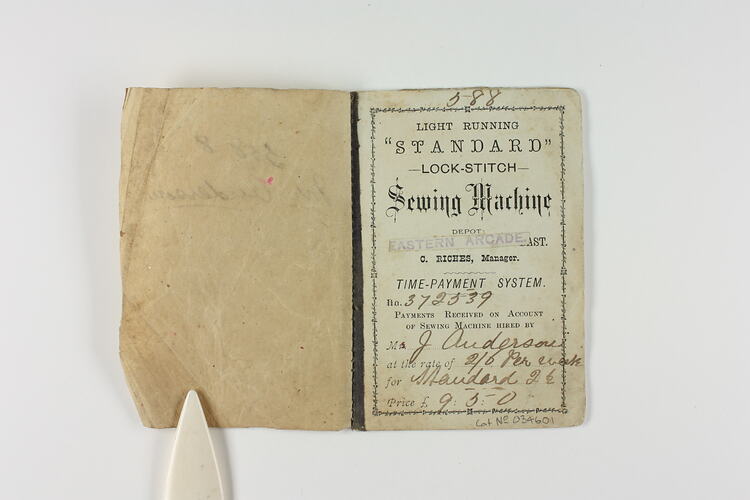 588
LIGHT RUNNING
"STANDARD"
—LOCK-STITCH—
Sewing Machine
DEPOT:
EASTERN ARCADE AST.
C. RICHES, Manager.
TIME-PAYMENT SYSTEM.
No. 372539
PAYMENTS RECEIVED ON ACCOUNT
OF SEWING MACHINE HIRED BY
M J Anderson
at the rate of 2/6 Per week
for Standard 2½
Price £ 9:5:0
Cat No 034601